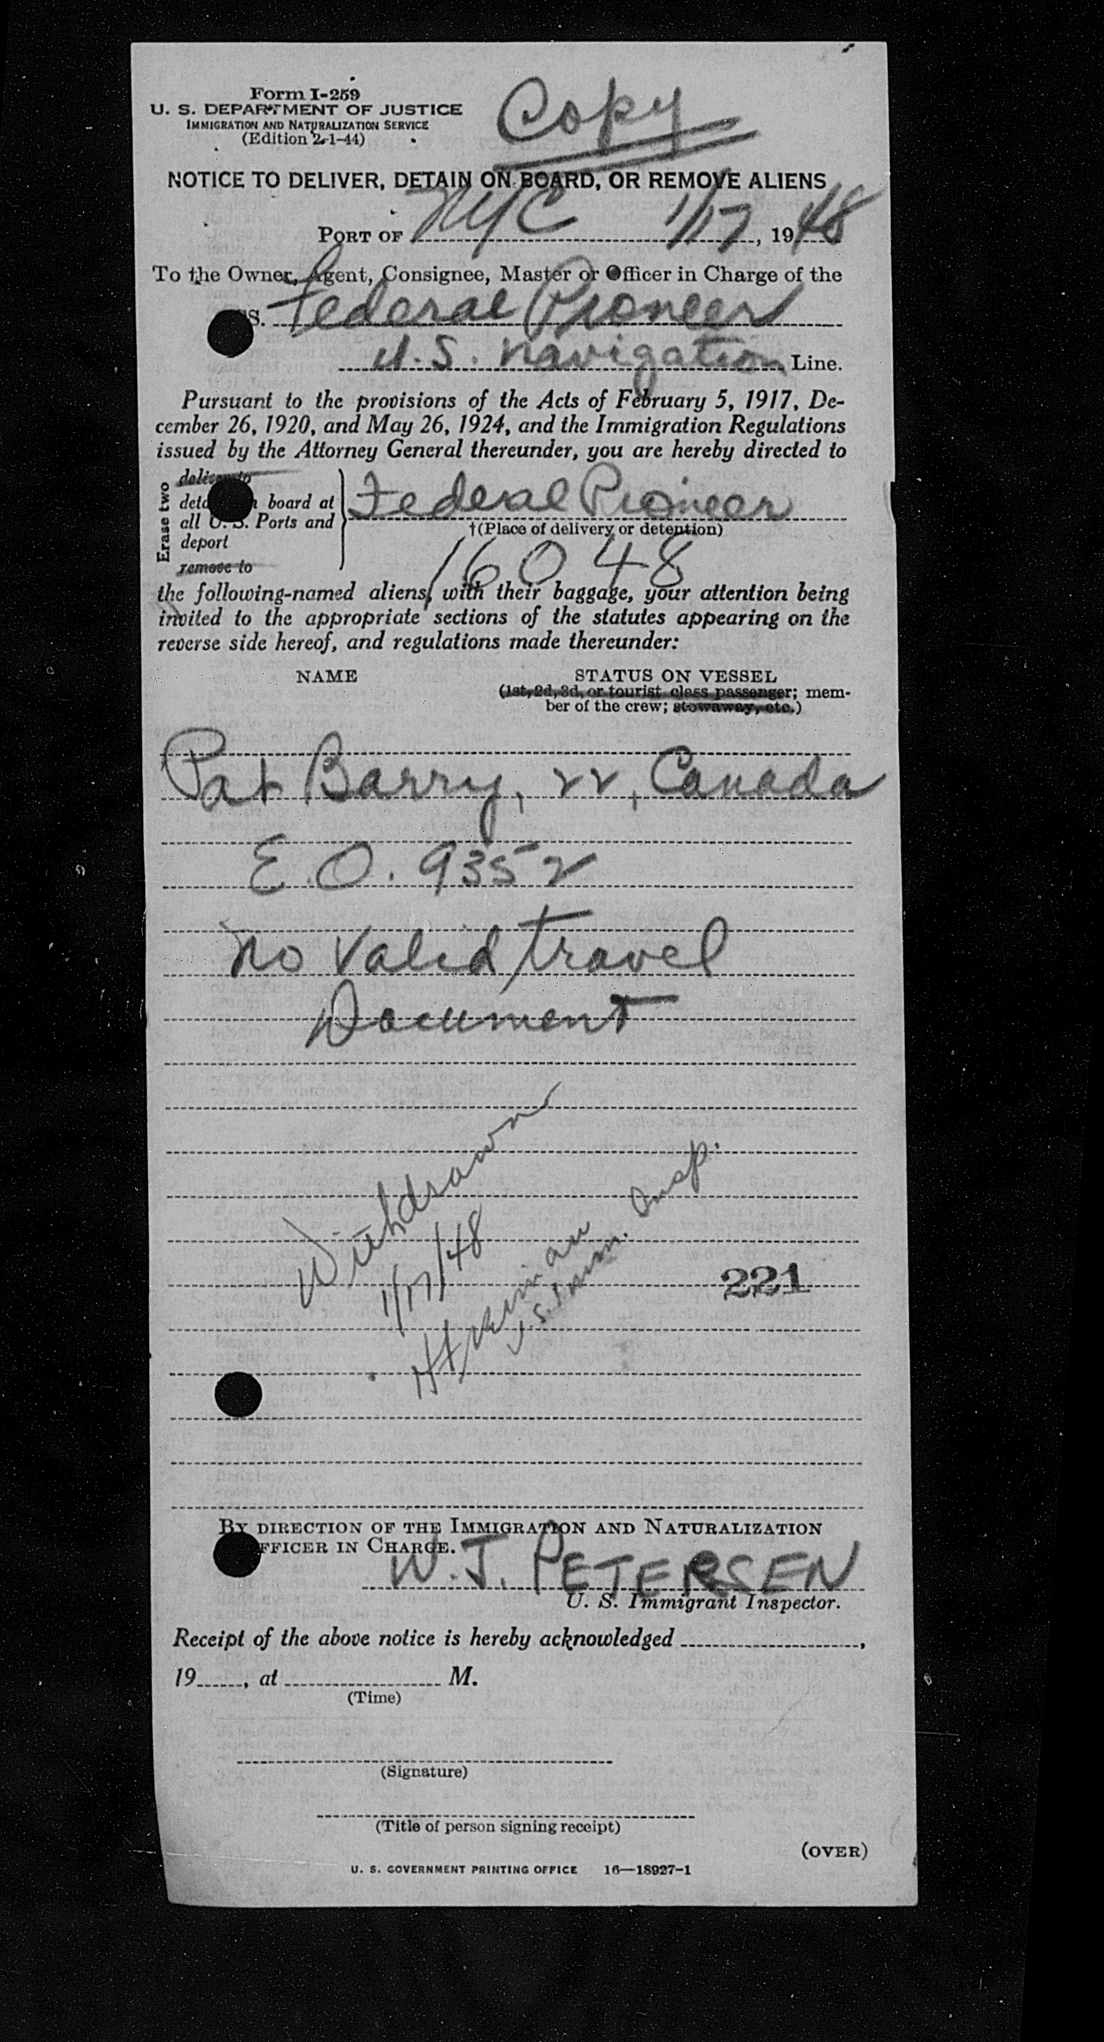 Form I-259
U. S. DEPARTMENT OF JUSTICE
IMMIGRATION AND NATURALIZATION SERVICE
(Edition 2-1-44)
Copy
NOTICE TO DELIVER, DETAIN ON BOARD, OR REMOVE ALIENS
PORT OF NYC 1/17, 1948
To the Owner, Agent, Consignee, Master or Officer in Charge of the
SS. Federal Pioneer
U.S. Navigation Line.
Pursuant to the provisions of the Acts of February 5, 1917, De-
cember 26, 1920, and May 26, 1924, and the Immigration Regulations
issued by the Attorney General thereunder, you are hereby directed to
Erase two
deliver to
board at
all U. S. Ports and
deport
remove to
Federal Pioneer
†(Place of delivery or detention)
16048
the following-named aliens, with their baggage, your attention being
invited to the appropriate sections of the statutes appearing on the
reverse side hereof, and regulations made thereunder:
NAME STATUS ON VESSEL
(1st, 2d, 3d, or tourist class passenger; mem-
ber of the crew; stowaway, etc.)
Pat Barry, 22, Canada
E.O. 9352
No valid travel
Document
Withdrawn
1/17/48
U.S. Imm. Insp.
221
BY DIRECTION OF THE IMMIGRATION AND NATURALIZATION
OFFICER IN CHARGE.
W. J. PETERSEN
U. S. Immigrant Inspector.
Receipt of the above notice is hereby acknowledged ,
19 , at M.
(Time)
(Signature)
(Title of person signing receipt)
(OVER)
U. S. GOVERNMENT PRINTING OFFICE 16—18927-1